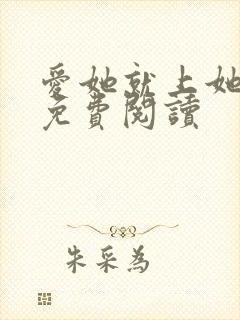 愛她就上她
免費閱讀
朱采為